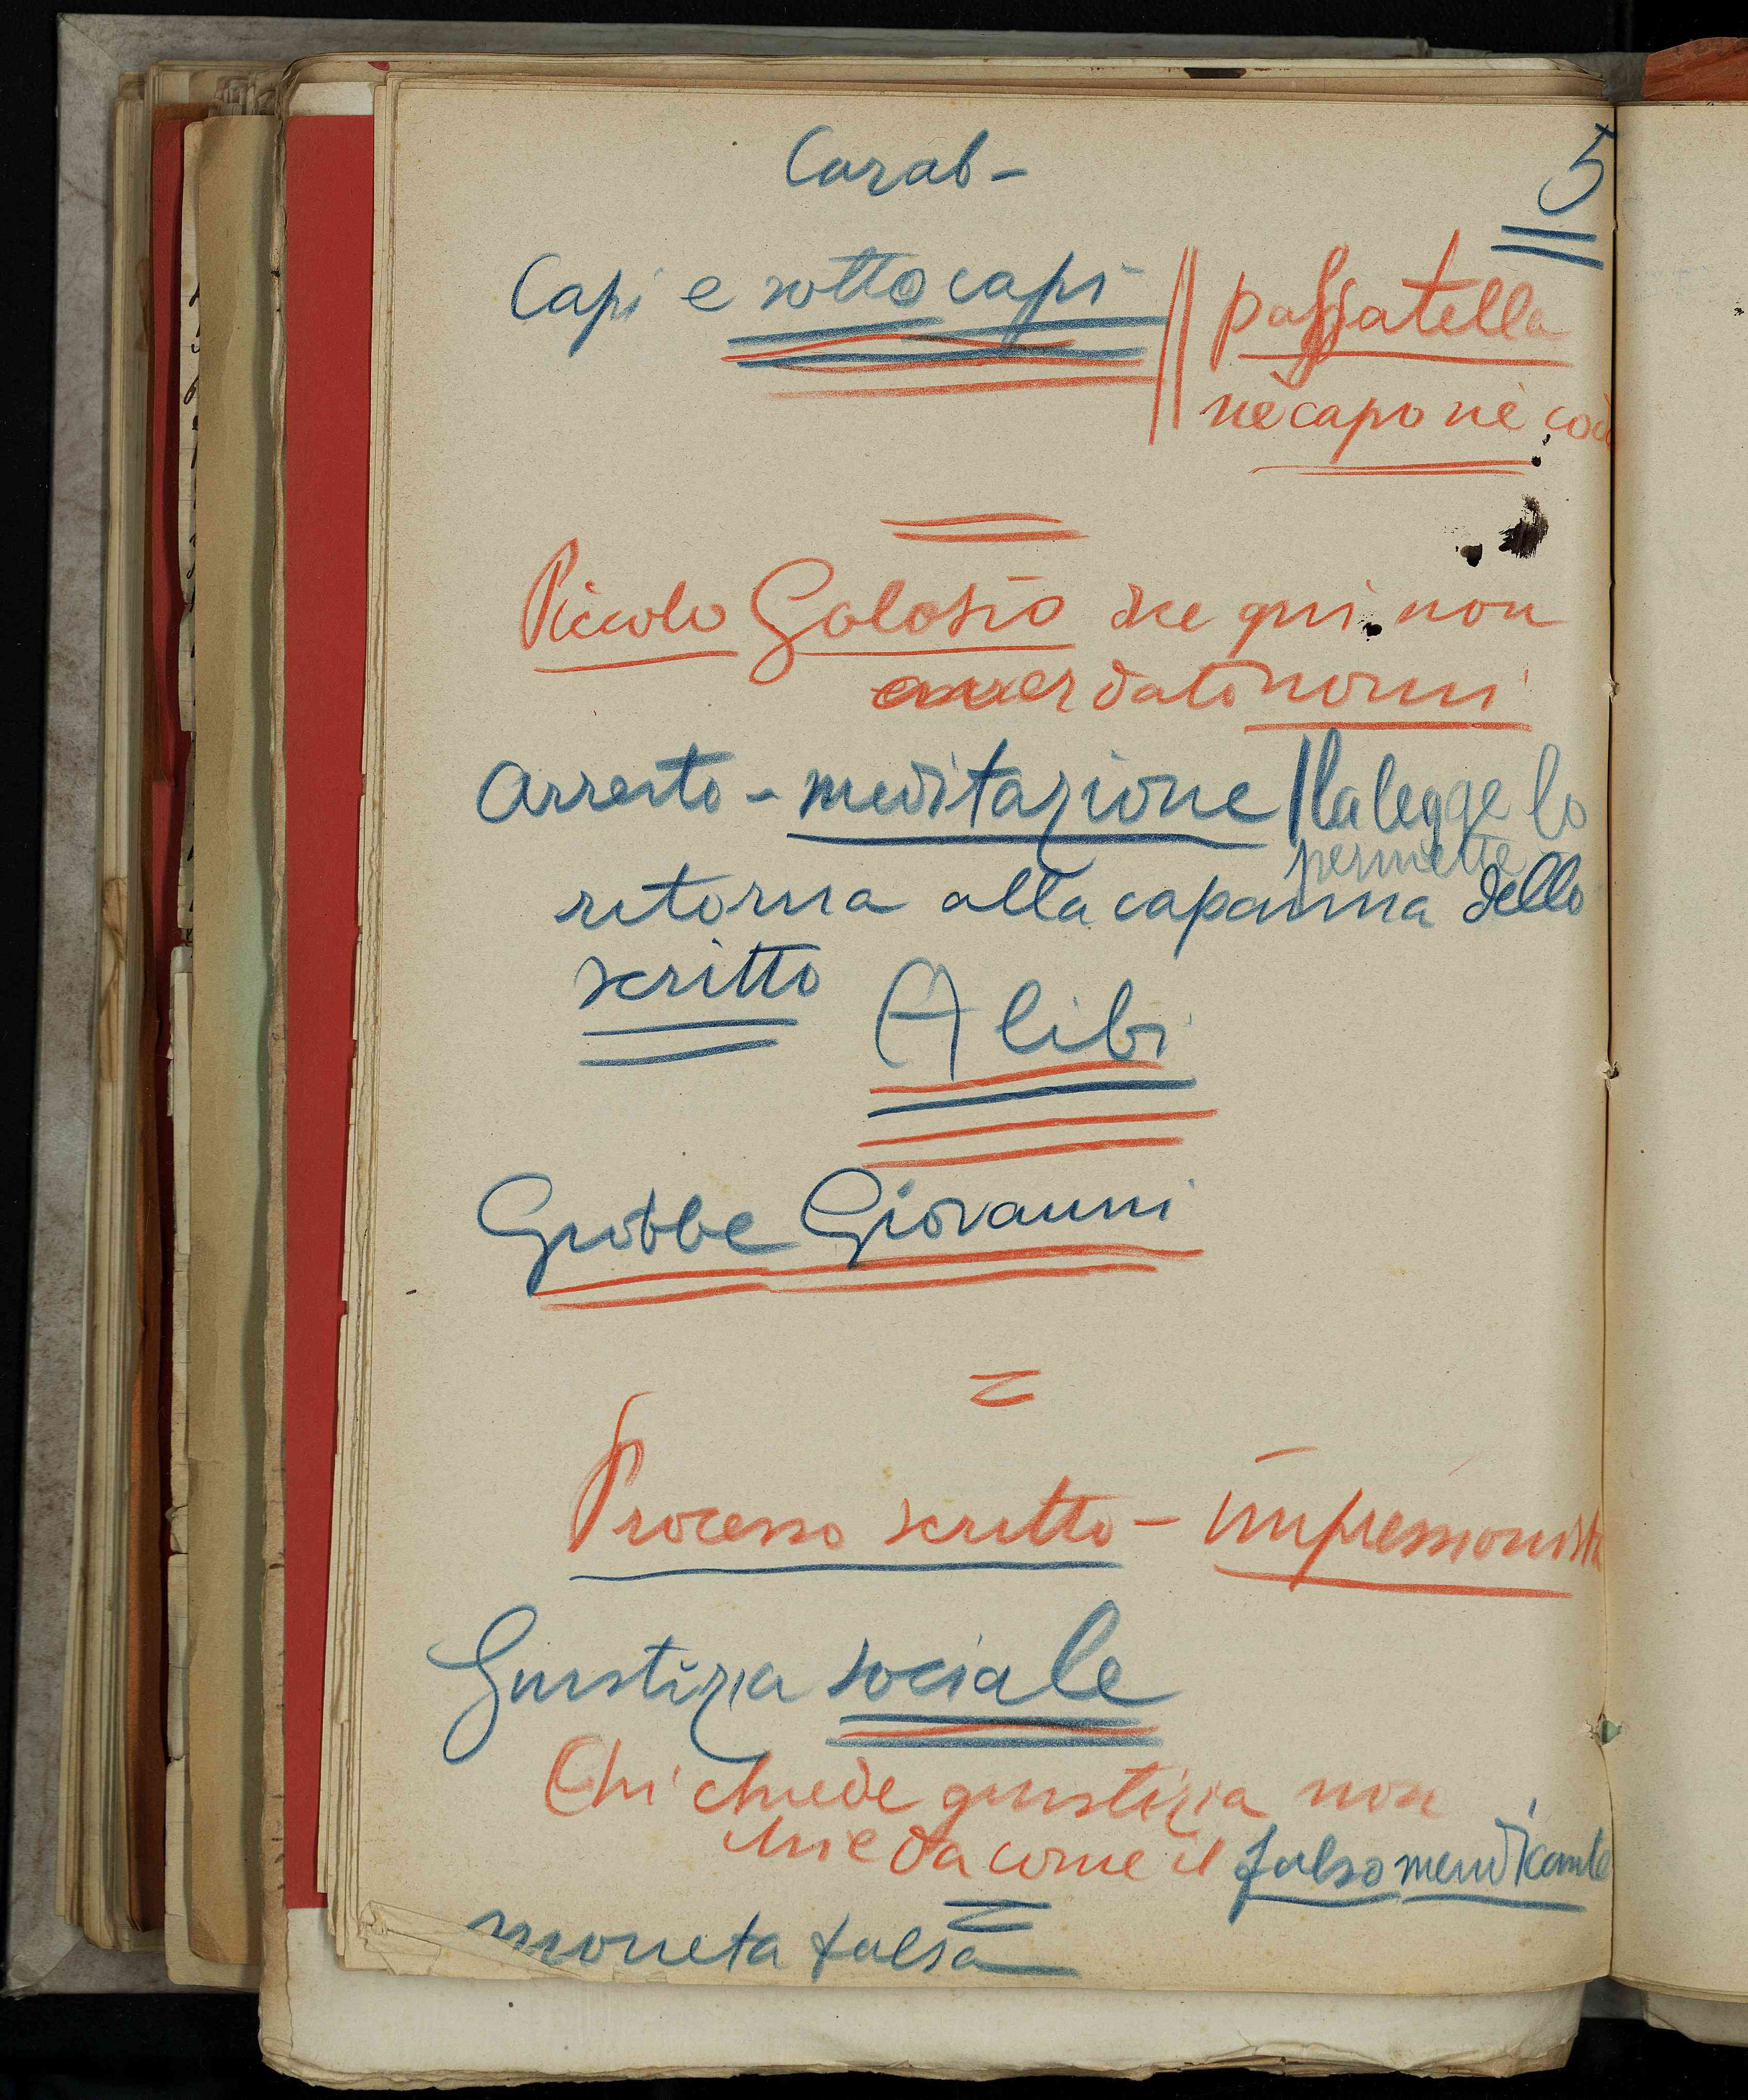 Carab-
5
Capi e sottocapi || passatella
nè capo nè coda
Piccolo Golosio dice qui non
aver dato nomi
Arresto - meditazione | la legge lo
permette
ritorna alla capanna dello
scritto
Alibi
Gobbe Giovanni
Processo scritto - impressionista
Giustizia sociale
Chi chiede giustizia non
chieda come il falso mendicante
moneta falsa